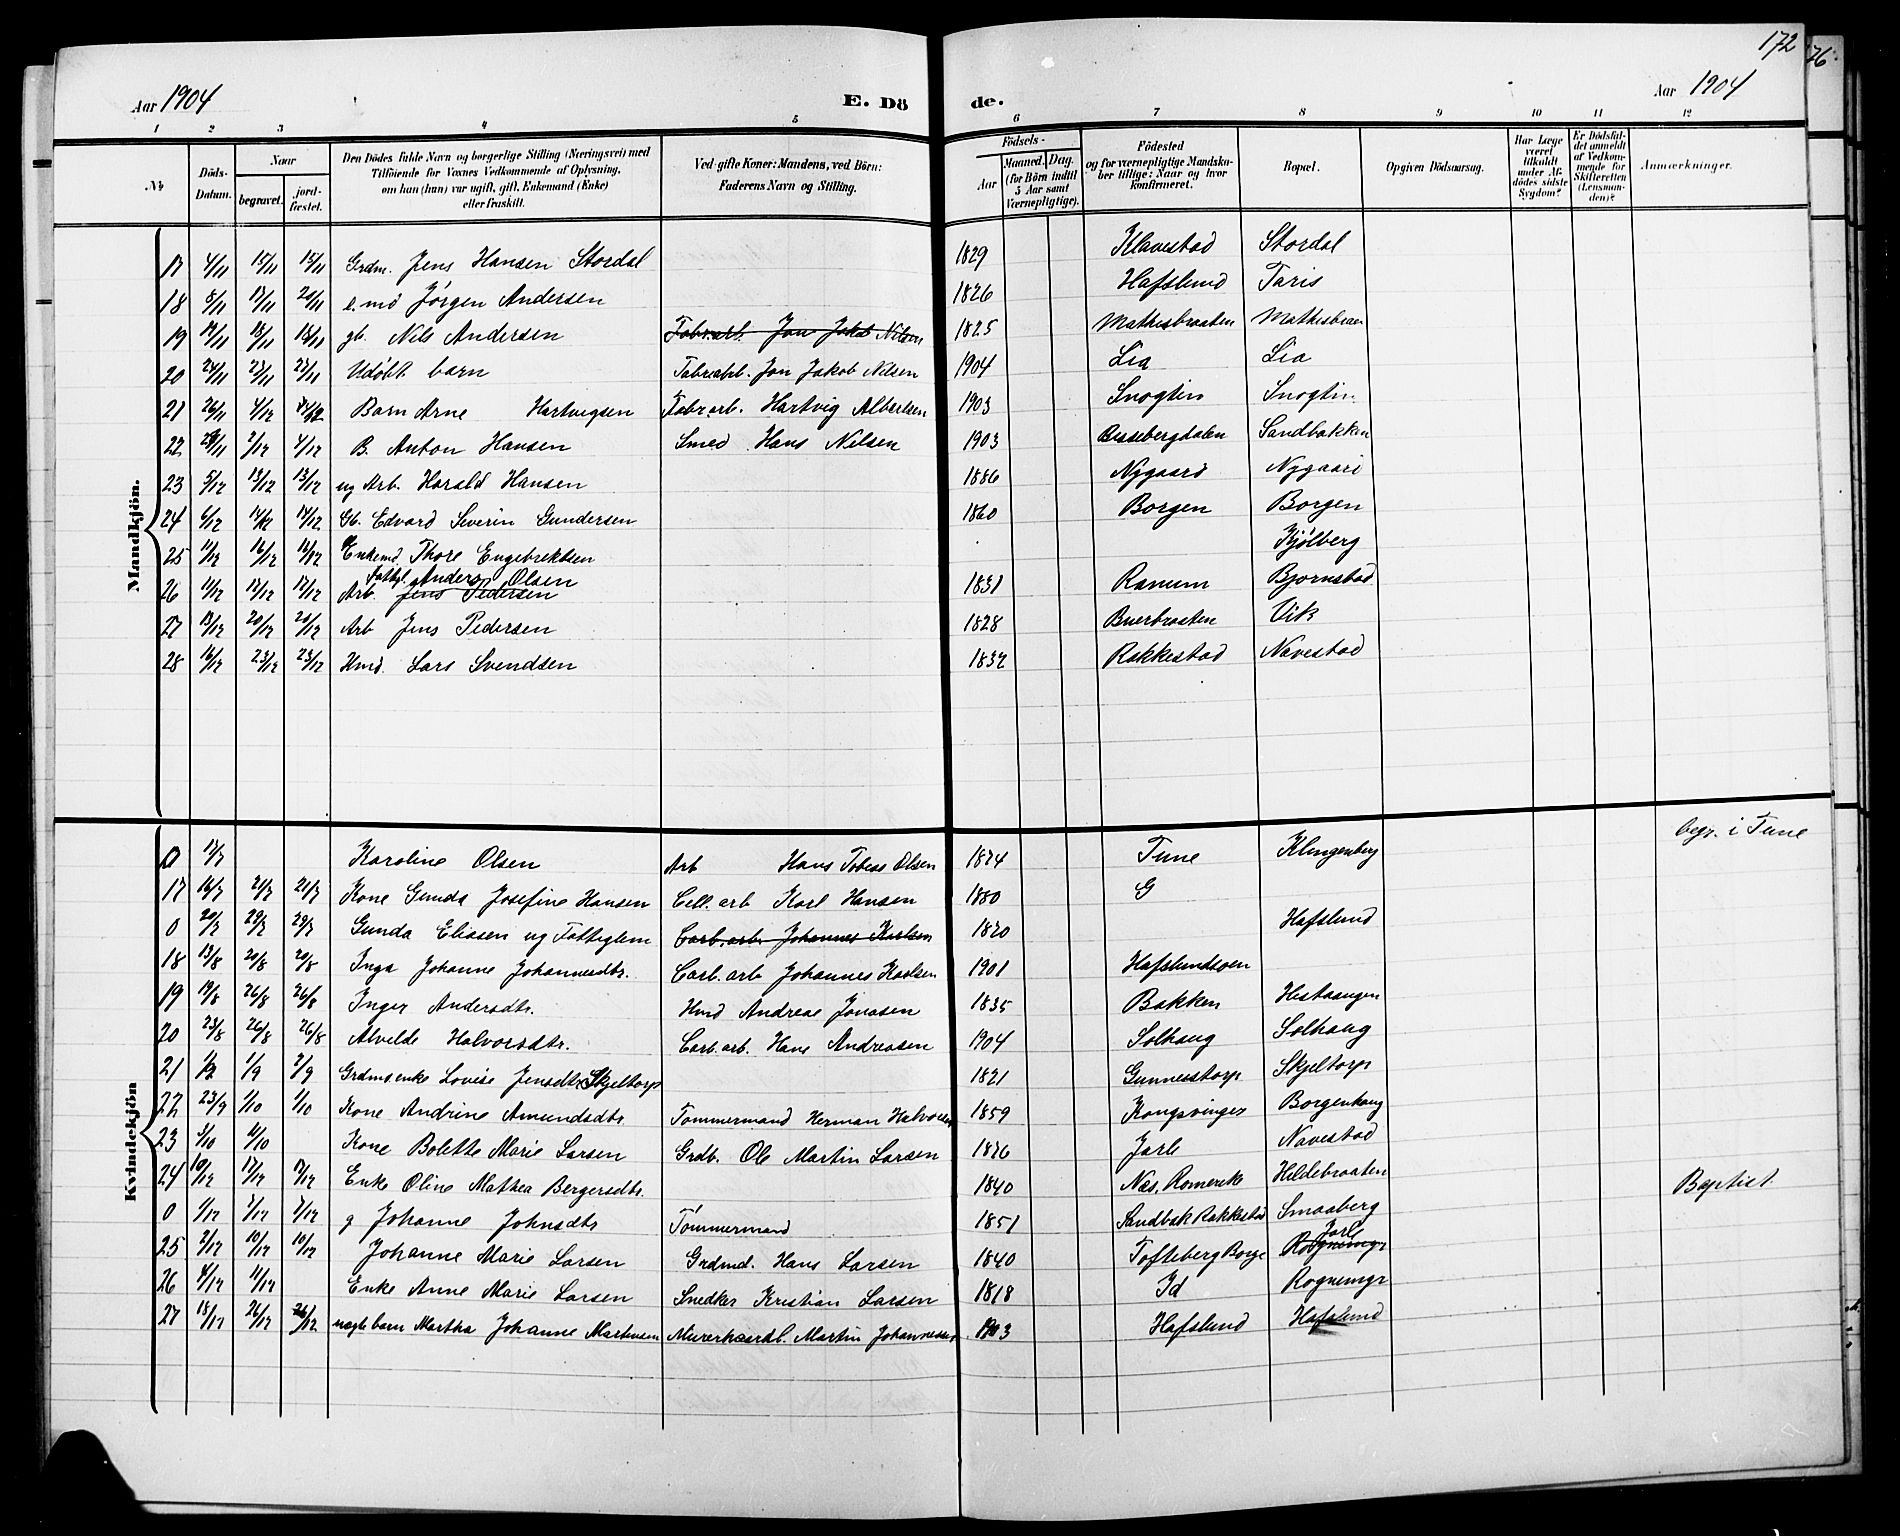 172
76.
Aar 1904 E. Dö de. Aar 1904
1 2 3 4 5 6 7 8 9 10 11 12
No
Döds-Datum.
Naar
begravet.
jord-fæstet.
Den Dödes fulde Navn og borgerlige Stilling (Næringsvei) med
Tilföiende for Voxnes Vedkommende af Oplysning,
om han (hun) var ugift, gift, Enkemand (Enke)
eller fraskilt.
Ved gifte Koner: Mandens, ved Börn:
Faderens Navn og Stilling.
Födsels-
Aar
Maaned. Dag.
(for Börn indtil
5 Aar samt
Værnepligtige).
Födested
og for værnepligtige Mandskaber tillige: Naar og hvor
konfirmeret.
Bopæl.
Opgiven Dödsaarsag.
Har Læge
været
tilkaldt
under Afdödes sidste
Sygdom?
Er Dödsfaldet anmeldt
af Vedkommende for
Skifteretten
(Lensmanden)?
Anmærkninger.
Mandkjön.
17 4/11 15/11 15/11 Grdm. Jens Hansen Stordal 1829 Klavestad Stordal
18 8/11 e.md Jörgen Andersen 1826 Hafslund Taris
19 gb. Nils Andersen Fabr.arb. Jon Jakob Nilsen 1825 Mathisbraaten
20 Udöbt barn Fabrarb. Jon Jakob Nilsen 1904 Lia Lia
21 26/11 4/12 Barn Arne Hartvigsen Fabrarb. Hartvig Albertsen 1903 Snogtin Snogtin
22 2/12 4/12 B. Anton Hansen Smed Hans Nilsen 1903 Bissebergdalen Sandbakken
23 5/12 13/12 13/12 ug Arb. Harald Hansen 1886 Nygaard Nygaard
24 6/12 14/12 14/12 Gb. Edvard Severin Gundersen 1860 Borgen Borgen
25 11/12 16/12 Enkemd Thore Engebrektsen Kjölberg
26 11/12 17/12 17/12 Arb. Jens Pedersen Fattigl. Anders Olsen 1831 Ranum Bjørnstad
27 13/12 20/12 20/12 Arb Jens Pedersen 1828 Buerbraaten Vik
28 16/12 23/12 23/12 Hmd. Lars Svendsen 1832 Rakkestad Navestad
Kvindekjön
0 Karoline Olsen Arb Hans Tobias Olsen 1874 Tune Klingenberg begr. i Tune
17 16/7 21/7 21/7 Kone Gunda Josefine Hansen Cell. arb Karl Hansen 1880 G
0 20/7 29/7 29/7 Gunda Eliasen ug Fattiglem Carb.arb. Johannes Karlsen 1820 Hafslund
18 13/8 20/8 20/8 Inga Johanne Johannesdtr. Carb. arb Johannes Karlsen 1901 Hafslundsoen
19 19/8 26/8 26/8 Inger Andersdtr. Hmd Andreas Jonasen 1835 Bakken Hestaangen
20 23/8 26/8 26/8 Alvilde Halvorsdtr. Carb. arb. Hans Andreasen 1904 Solhaug Solhaug
21 Grdmsenke Lovise Jensdtr Skjeltorp 1821 Gunnerstorp Skjeltorp
22 23/9 1/10 1/10 Kone Andrine Amundsdtr Tømmermand Herman Halvorsen 1859 Kongsvinger Borgenhaug
23 3/10 6/10 Kone Bolette Marie Larsen Grdb. Ole Martin Larsen 1826 Jarle Navestad
24 10/12 17/12 17/12 Enke Oline Mathea Bergersdtr. 1840 Næs, Romerike Hildebraaten
0 1/12 7/12 7/12 g Johanne Johnsdtr Tömmermand 1851 Sandbæk Rakkestad Smaaberg Baptist
25 2/12 10/12 10/12 Johanne Marie Larsen Grdmd. Hans Larsen 1840 Tofteberg Borge Rognmyr Jarle
26 4/12 11/12 Enke Anne Marie Larsen Snedker Kristian Larsen 1818 Id Rognemyr
27 18/12 26/12 26/12 uægte barn Martha Johanne Martinsen Murerhaandl. Martin Johannessen 1903 Hafslund Hafslund